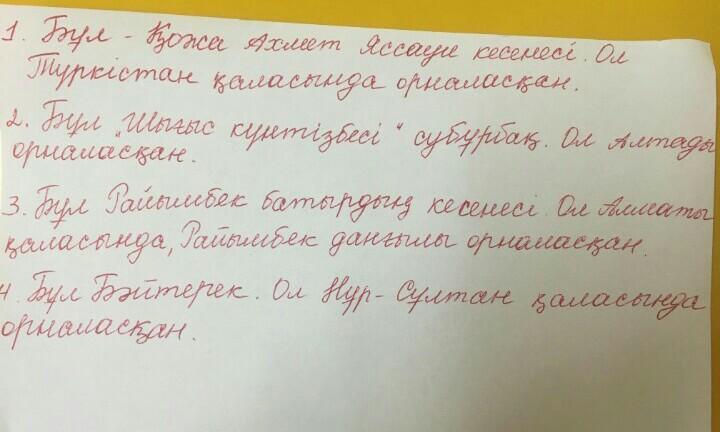 1. Бұл - Қожа Ахмет Яссауи кесенесі. Ол
Түркістан қаласында орналасқан.
2. Бұл „Шығыс күнтізбесі" субұрбақ. Ол Алматы
орналасқан.
3. Бұл Райымбек батырдың кесенесі. Ол Алматы
қаласында, Райымбек даңғылы орналасқан.
4. Бұл Бәйтерек. Ол Нұр-Сұлтан қаласында
орналасқан.